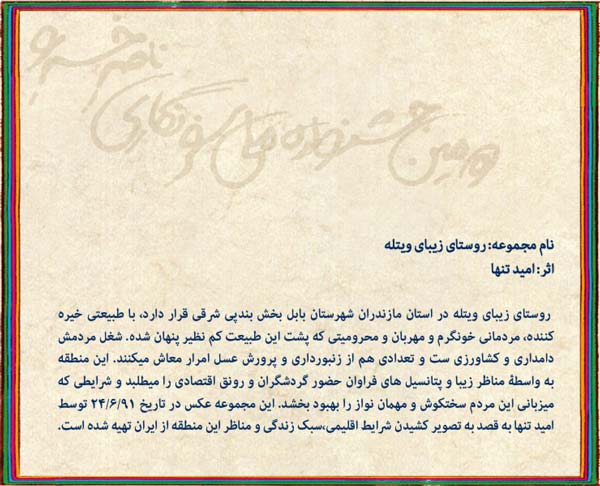 ناصر خسرو
دومین جشنواره ملی سفرنگاری
نام مجموعه: روستای زیبای ویتله
اثر: امید تنها
روستای زیبای ویتله در استان مازندران شهرستان بابل بخش بندپی شرقی قرار دارد، با طبیعتی خیره
کننده، مردمانی خونگرم و مهربان و محرومیتی که پشت این طبیعت کم نظیر پنهان شده. شغل مردمش
دامداری و کشاورزی ست و تعدادی هم از زنبورداری و پرورش عسل امرار معاش میکنند. این منطقه
به واسطهٔ مناظر زیبا و پتانسیل های فراوان حضور گردشگران و رونق اقتصادی را میطلبد و شرایطی که
میزبانی این مردم سختکوش و مهمان نواز را بهبود بخشد. این مجموعه عکس در تاریخ ۲۴/۶/۹۱ توسط
امید تنها به قصد به تصویر کشیدن شرایط اقلیمی،سبک زندگی و مناظر این منطقه از ایران تهیه شده است.